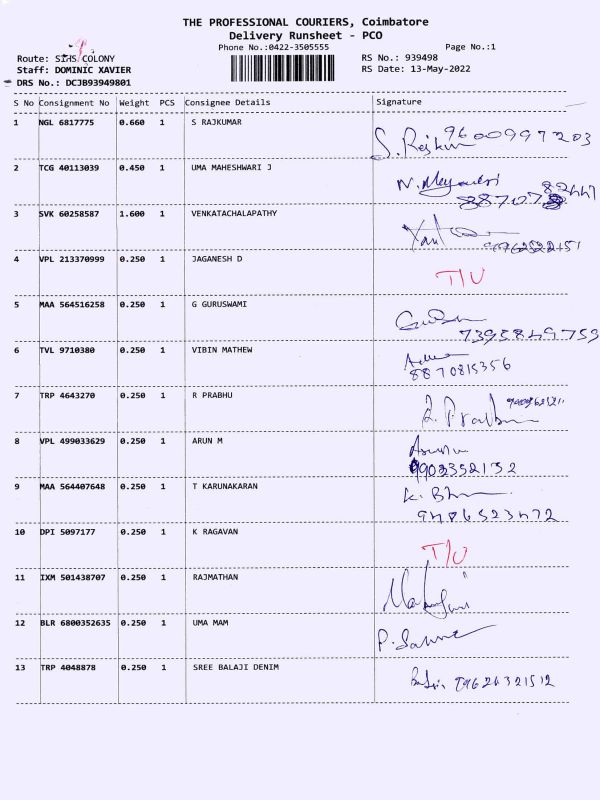 THE PROFESSIONAL COURIERS, Coimbatore
Delivery Runsheet - PCO
Phone No.:0422-3505555 Page No.:1
Route: SIHS COLONY RS No.: 939498
Staff: DOMINIC XAVIER RS Date: 13-May-2022
DRS No.: DCJB93949801
S No Consignment No Weight PCS Consignee Details Signature
1 NGL 6817775 0.660 1 S RAJKUMAR S. Rajkum 9600997203
2 TCG 40113039 0.450 1 UMA MAHESHWARI J
3 SVK 60258587 1.600 1 VENKATACHALAPATHY
4 VPL 213370999 0.250 1 JAGANESH D T/U
5 MAA 564516258 0.250 1 G GURUSWAMI
7395849759
6 TVL 9710380 0.250 1 VIBIN MATHEW
8870815356
7 TRP 4643270 0.250 1 R PRABHU R. Prabhu
8 VPL 499033629 0.250 1 ARUN M
9902352132
9 MAA 564407648 0.250 1 T KARUNAKARAN
9486523472
10 DPI 5097177 0.250 1 K RAGAVAN T/U
11 IXM 501438707 0.250 1 RAJMATHAN
12 BLR 6800352635 0.250 1 UMA MAM
13 TRP 4048878 0.250 1 SREE BALAJI DENIM